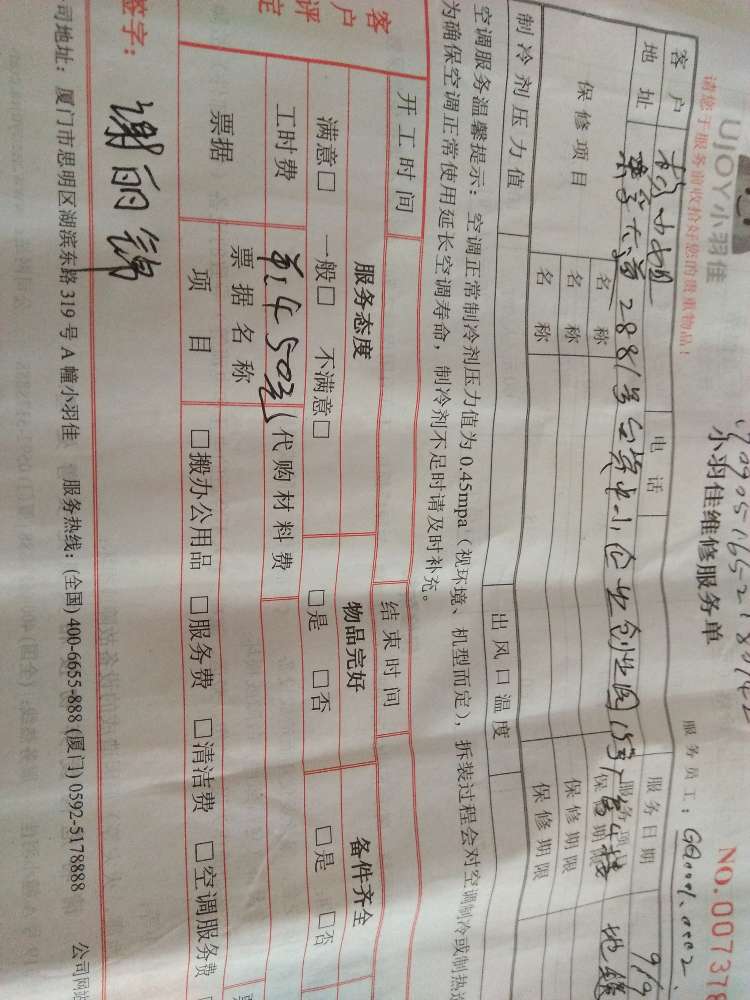 UJOY小羽佳
小羽佳维修服务单
NO.007378
请您于服务前收拾好您的贵重物品!
服务员工:
客户
电话
服务日期
9/9
地址
2881号台资中小企业创业园
保修项目
名称
保修期限
名称
保修期限
名称
保修期限
制冷剂压力值
出风口温度
空调服务温馨提示：空调正常制冷剂压力值为0.45mpa（视环境、机型而定），拆装过程会对空调制冷或制热
为确保空调正常使用延长空调寿命，制冷剂不足时请及时补充。
开工时间
结束时间
客户评定
服务态度
物品完好
备件齐全
满意□ 一般□ 不满意□
□是 □否
□是 □否
工时费
450元
代购材料费
票据
票据名称
项目
□搬办公用品 □服务费 □清洁费 □空调服务费
签字：
谢丽锦
司地址：厦门市思明区湖滨东路319号A幢小羽佳
服务热线：(全国)400-6655-888 (厦门)0592-5178888
公司网站